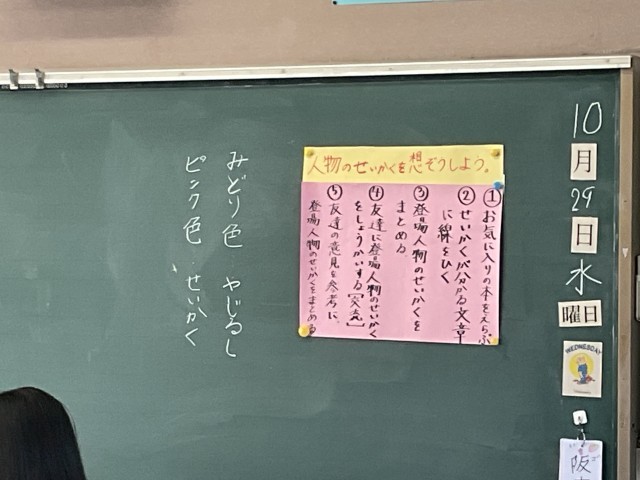 10
月
29
日
水
曜日
WEDNESDAY
阪
人物のせいかくを想ぞうしよう。
①お気に入りの本をえらぶ
②せいかくが分かる文章
に線をひく
③登場人物のせいかくを
まとめる
④友達に登場人物のせいかく
をしょうかいする[交流]
⑤友達の意見を参考に、
登場人物のせいかくをまとめる
みどり色 やじるし
ピンク色 せいかく